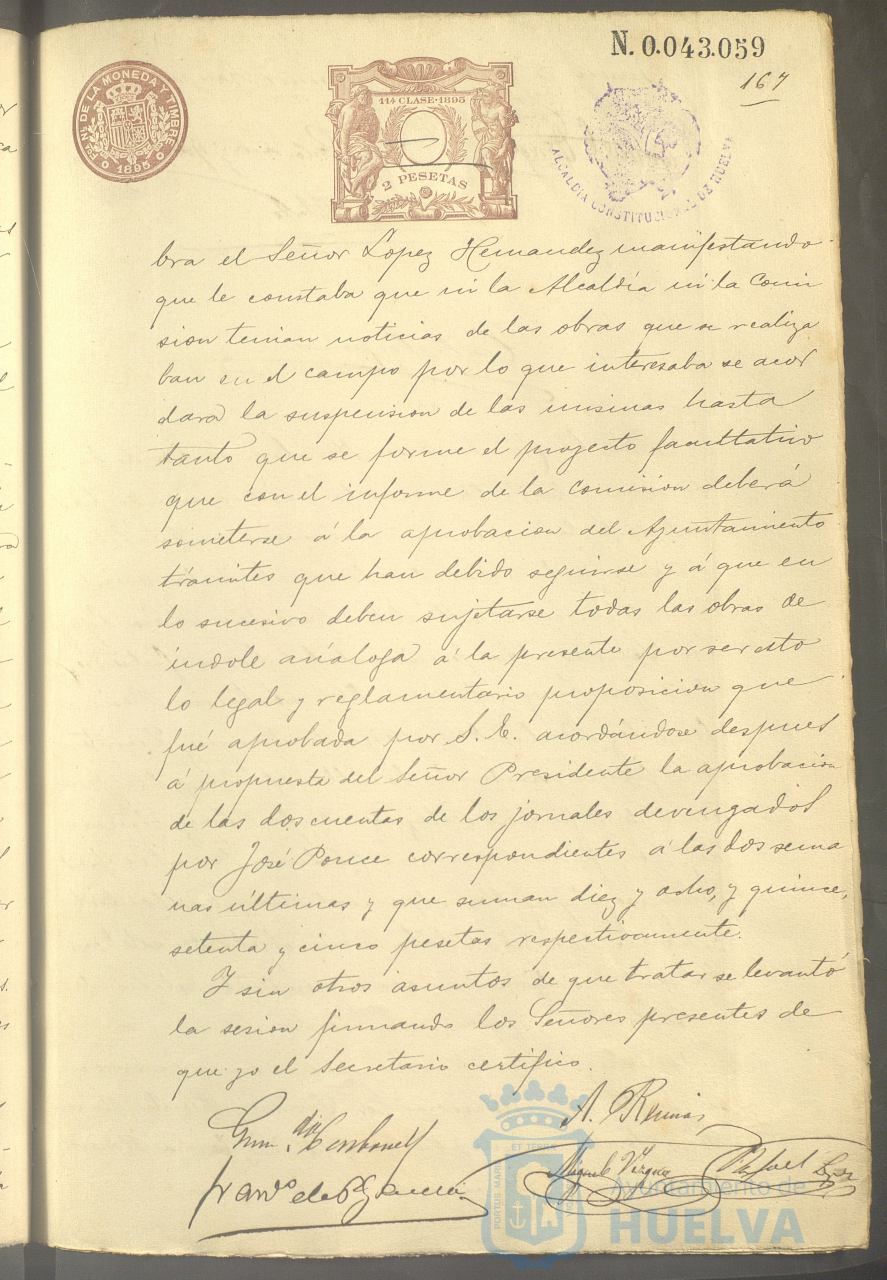 N. 0.043.059
167
FCA. NAL. DE LA MONEDA Y TIMBRE
1895
11ª CLASE·1895
2 PESETAS
ALCALDIA CONSTITUCIONAL DE HUELVA
bra el Señor Lopez Hernandez manifestando
que le constaba que ni la Alcaldía ni la Comi
sion tenian noticias de las obras que se realiza
ban en el campo por lo que interesaba se acor
dara la suspension de las mismas hasta
tanto que se forme el proyecto facultativo
que con el informe de la Comision deberá
someterse á la aprobacion del Ayuntamiento
trámites que han debido seguirse y á que en
lo sucesivo deben sujetarse todas las obras de
índole análoga á la presente por ser esto
lo legal y reglamentario proposicion que
fué aprobada por S. E. acordándose despues
á propuesta del Señor Presidente la aprobacion
de las dos cuentas de los jornales devengados
por José Ponce correspondientes á las dos sema
nas últimas y que suman diez y ocho, y quince,
setenta y cinco pesetas respectivamente.
Y sin otros asuntos de que tratar se levantó
la sesion firmando los Señores presentes de
que yo el Secretario certifico.
A.
Miguel Rafael
Franco de P. García
PORTUS MARIS ET TERRE
Ayuntamiento de
HUELVA